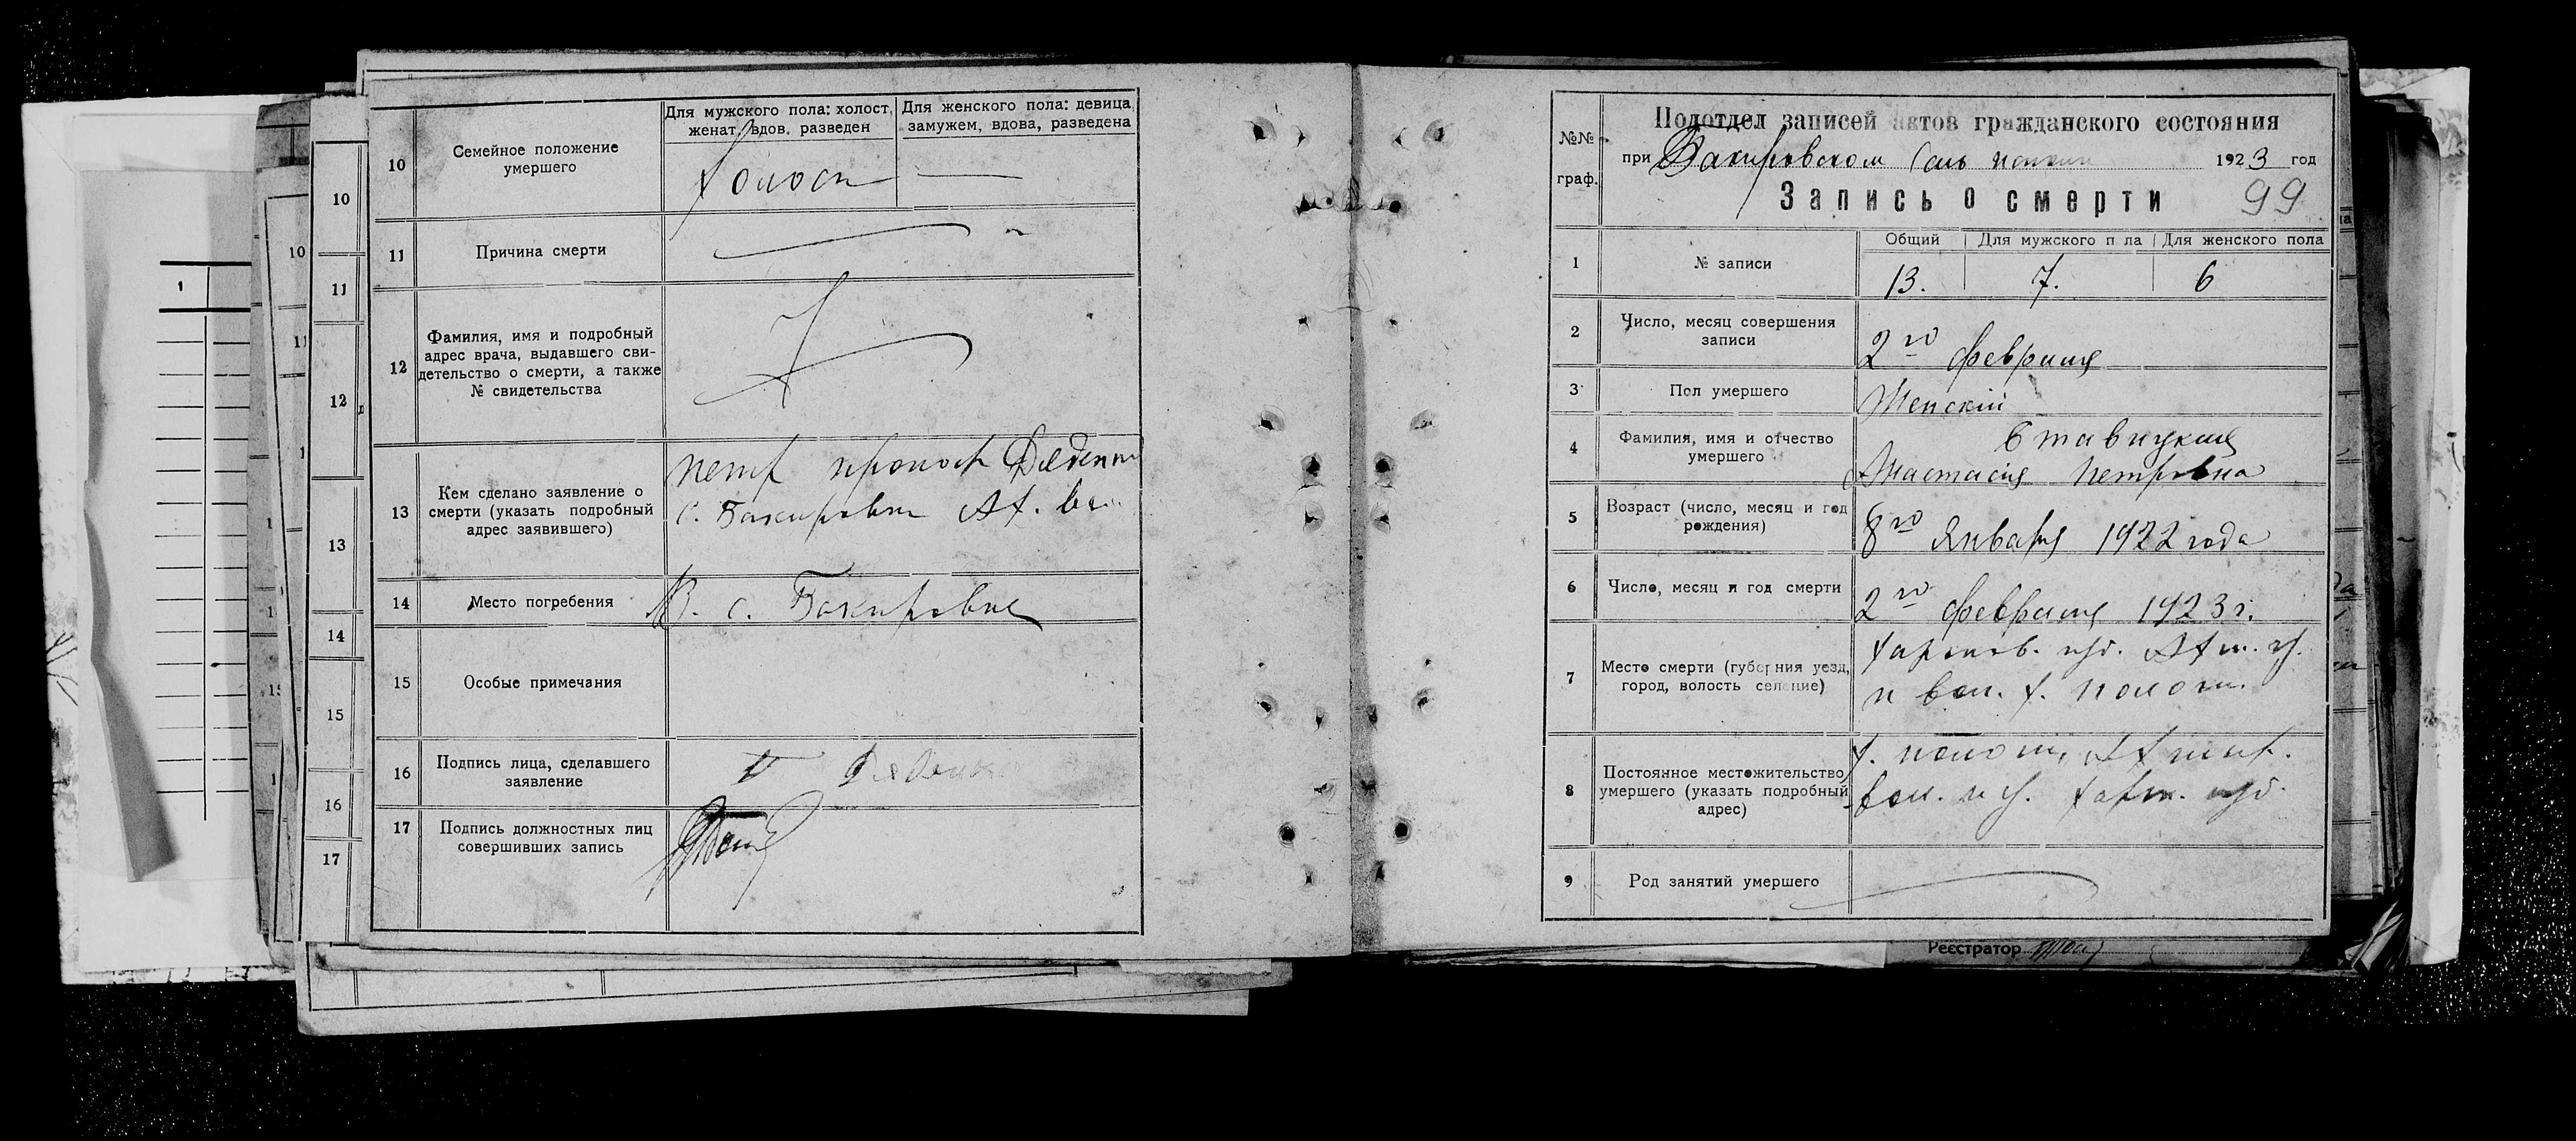 10
Семейное положение
умершего
Для мужского пола: холост,
женат, вдов, разведен
Для женского пола: девица,
замужем, вдова, разведена
Холост
11
Причина смерти
12
Фамилия, имя и подробный
адрес врача, выдавшего сви-
детельство о смерти, а также
№ свидетельства
13
Кем сделано заявление о
смерти (указать подробный
адрес заявившего)
Петр
с. Бакировки Ах. вол.
14
Место погребения
В. с. Бакировке
15
Особые примечания
16
Подпись лица, сделавшего
заявление
17
Подпись должностных лиц
совершивших запись
10
11
12
13
14
15
16
17
10
1
№№
граф.
Подотдел записей актов гражданского состояния
при Бакировском 1923 год
Запись о смерти 99
1
№ записи
Общий
Для мужского п ла
Для женского пола
13.
7.
6
2
Число, месяц совершения
записи
2го февраля
3
Пол умершего
Женский
4
Фамилия, имя и отчество
умершего
Ставицкая
Анастасия Петровна
5
Возраст (число, месяц и год
рождения)
8го Января 1922 года
6
Число, месяц и год смерти
2го февраля 1923 г.
7
Место смерти (губерния уезд,
город, волость селение)
Харьков. губ. Ахт. у.
и вол. х.
8
Постоянное местожительство
умершего (указать подробный
адрес)
х. Ахтыр.
вол. и у. Харьк. губ.
9
Род занятий умершего
Реєстратор